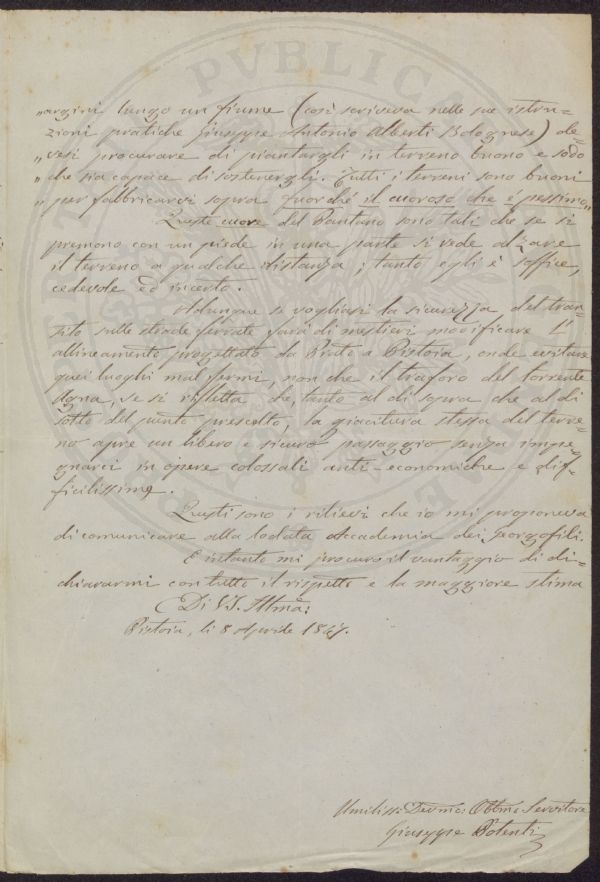 „argini lungo un fiume (così scriveva nelle sue istru-
zioni pratiche Giuseppe Antonio Alberti Bolognese) de-
„vesi procurare di piantargli in terreno buono e sodo
„che sia capace di sostenergli. Tutti i terreni sono buoni
„per fabbricarci sopra fuorché il cuoroso che è pessimo„
Queste cuore del Pantano sono tali che se si
premono con un piede in una parte si vede alzare
il terreno a qualche distanza; tanto egli è soffice,
cedevole ed incerto.
Adunque se vogliasi la sicurezza del tran-
sito sulle strade ferrate sarà di mestieri modificare l'
allineamento progettato da Prato a Pistoia, onde evitare
quei luoghi mal fermi, non che il traforo del torrente
Agna, se si rifletta che, tanto al di sopra che al di
sotto del punto prescelto, la giacitura stessa del terre-
no apre un libero e sicuro passaggio senza impe-
gnarci in opere colossali anti-economiche e dif-
ficilissime.
Questi sono i rilievi che io mi proponeva
di comunicare alla lodata Accademia dei Georgofili.
E intanto mi procuro il vantaggio di di-
chiararmi con tutto il rispetto e la maggiore stima
Di V.S. Illma:
Pistoia, li 8 Aprile 1847.
Umiliss: Devmo: Obbmo Servitore
Giuseppe Potenti
PVBLICA